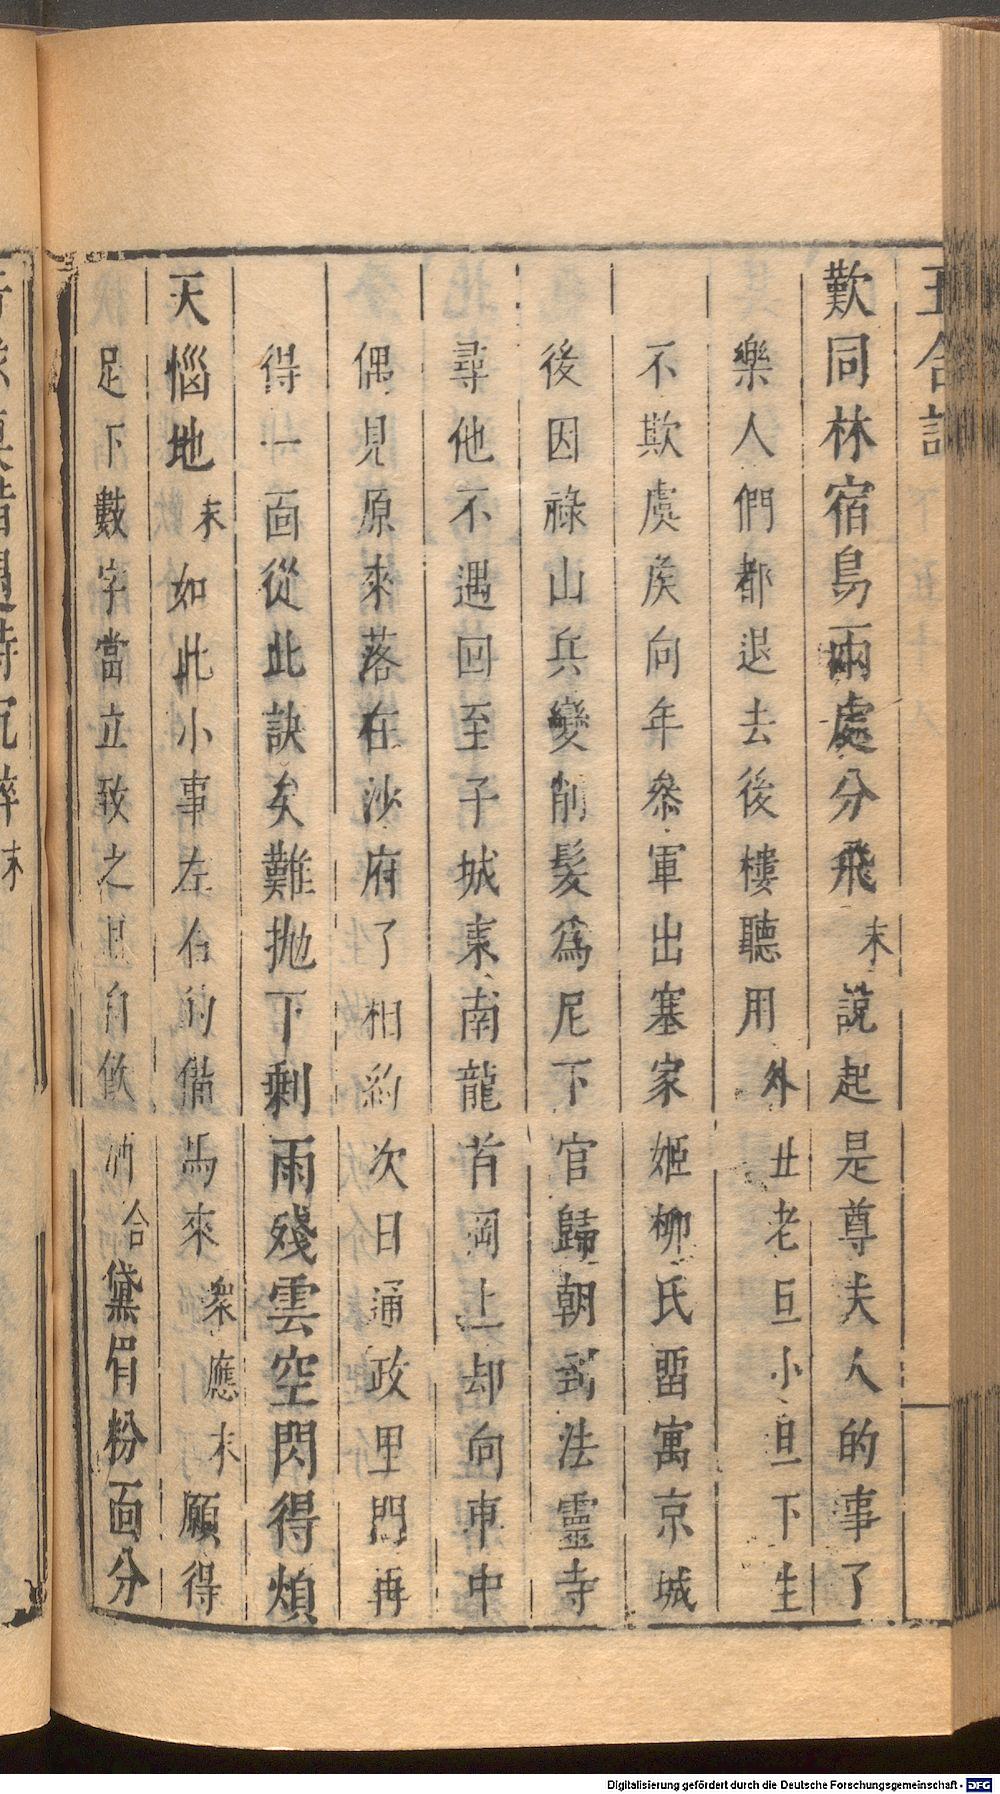 玉合記
歎同林宿鳥兩處分飛末說起是尊夫人的事了
樂人們都退去後樓聽用外丑老旦小旦下生
不欺虞矦向年叅軍出塞家姬柳氏畱寓京城
後因祿山兵變削髮爲尼下官歸朝到法靈寺
尋他不遇回至子城東南龍首岡上却向車中
偶見原來落在沙府了相約次日通政里門再
得一面從此訣矣難抛下剩雨殘雲空閃得煩
天惱地末如此小事左右的備馬來衆應末願得
足下數字當立致之
合黛眉粉面分
Digitalisierung gefördert durch die Deutsche Forschungsgemeinschaft - DFG